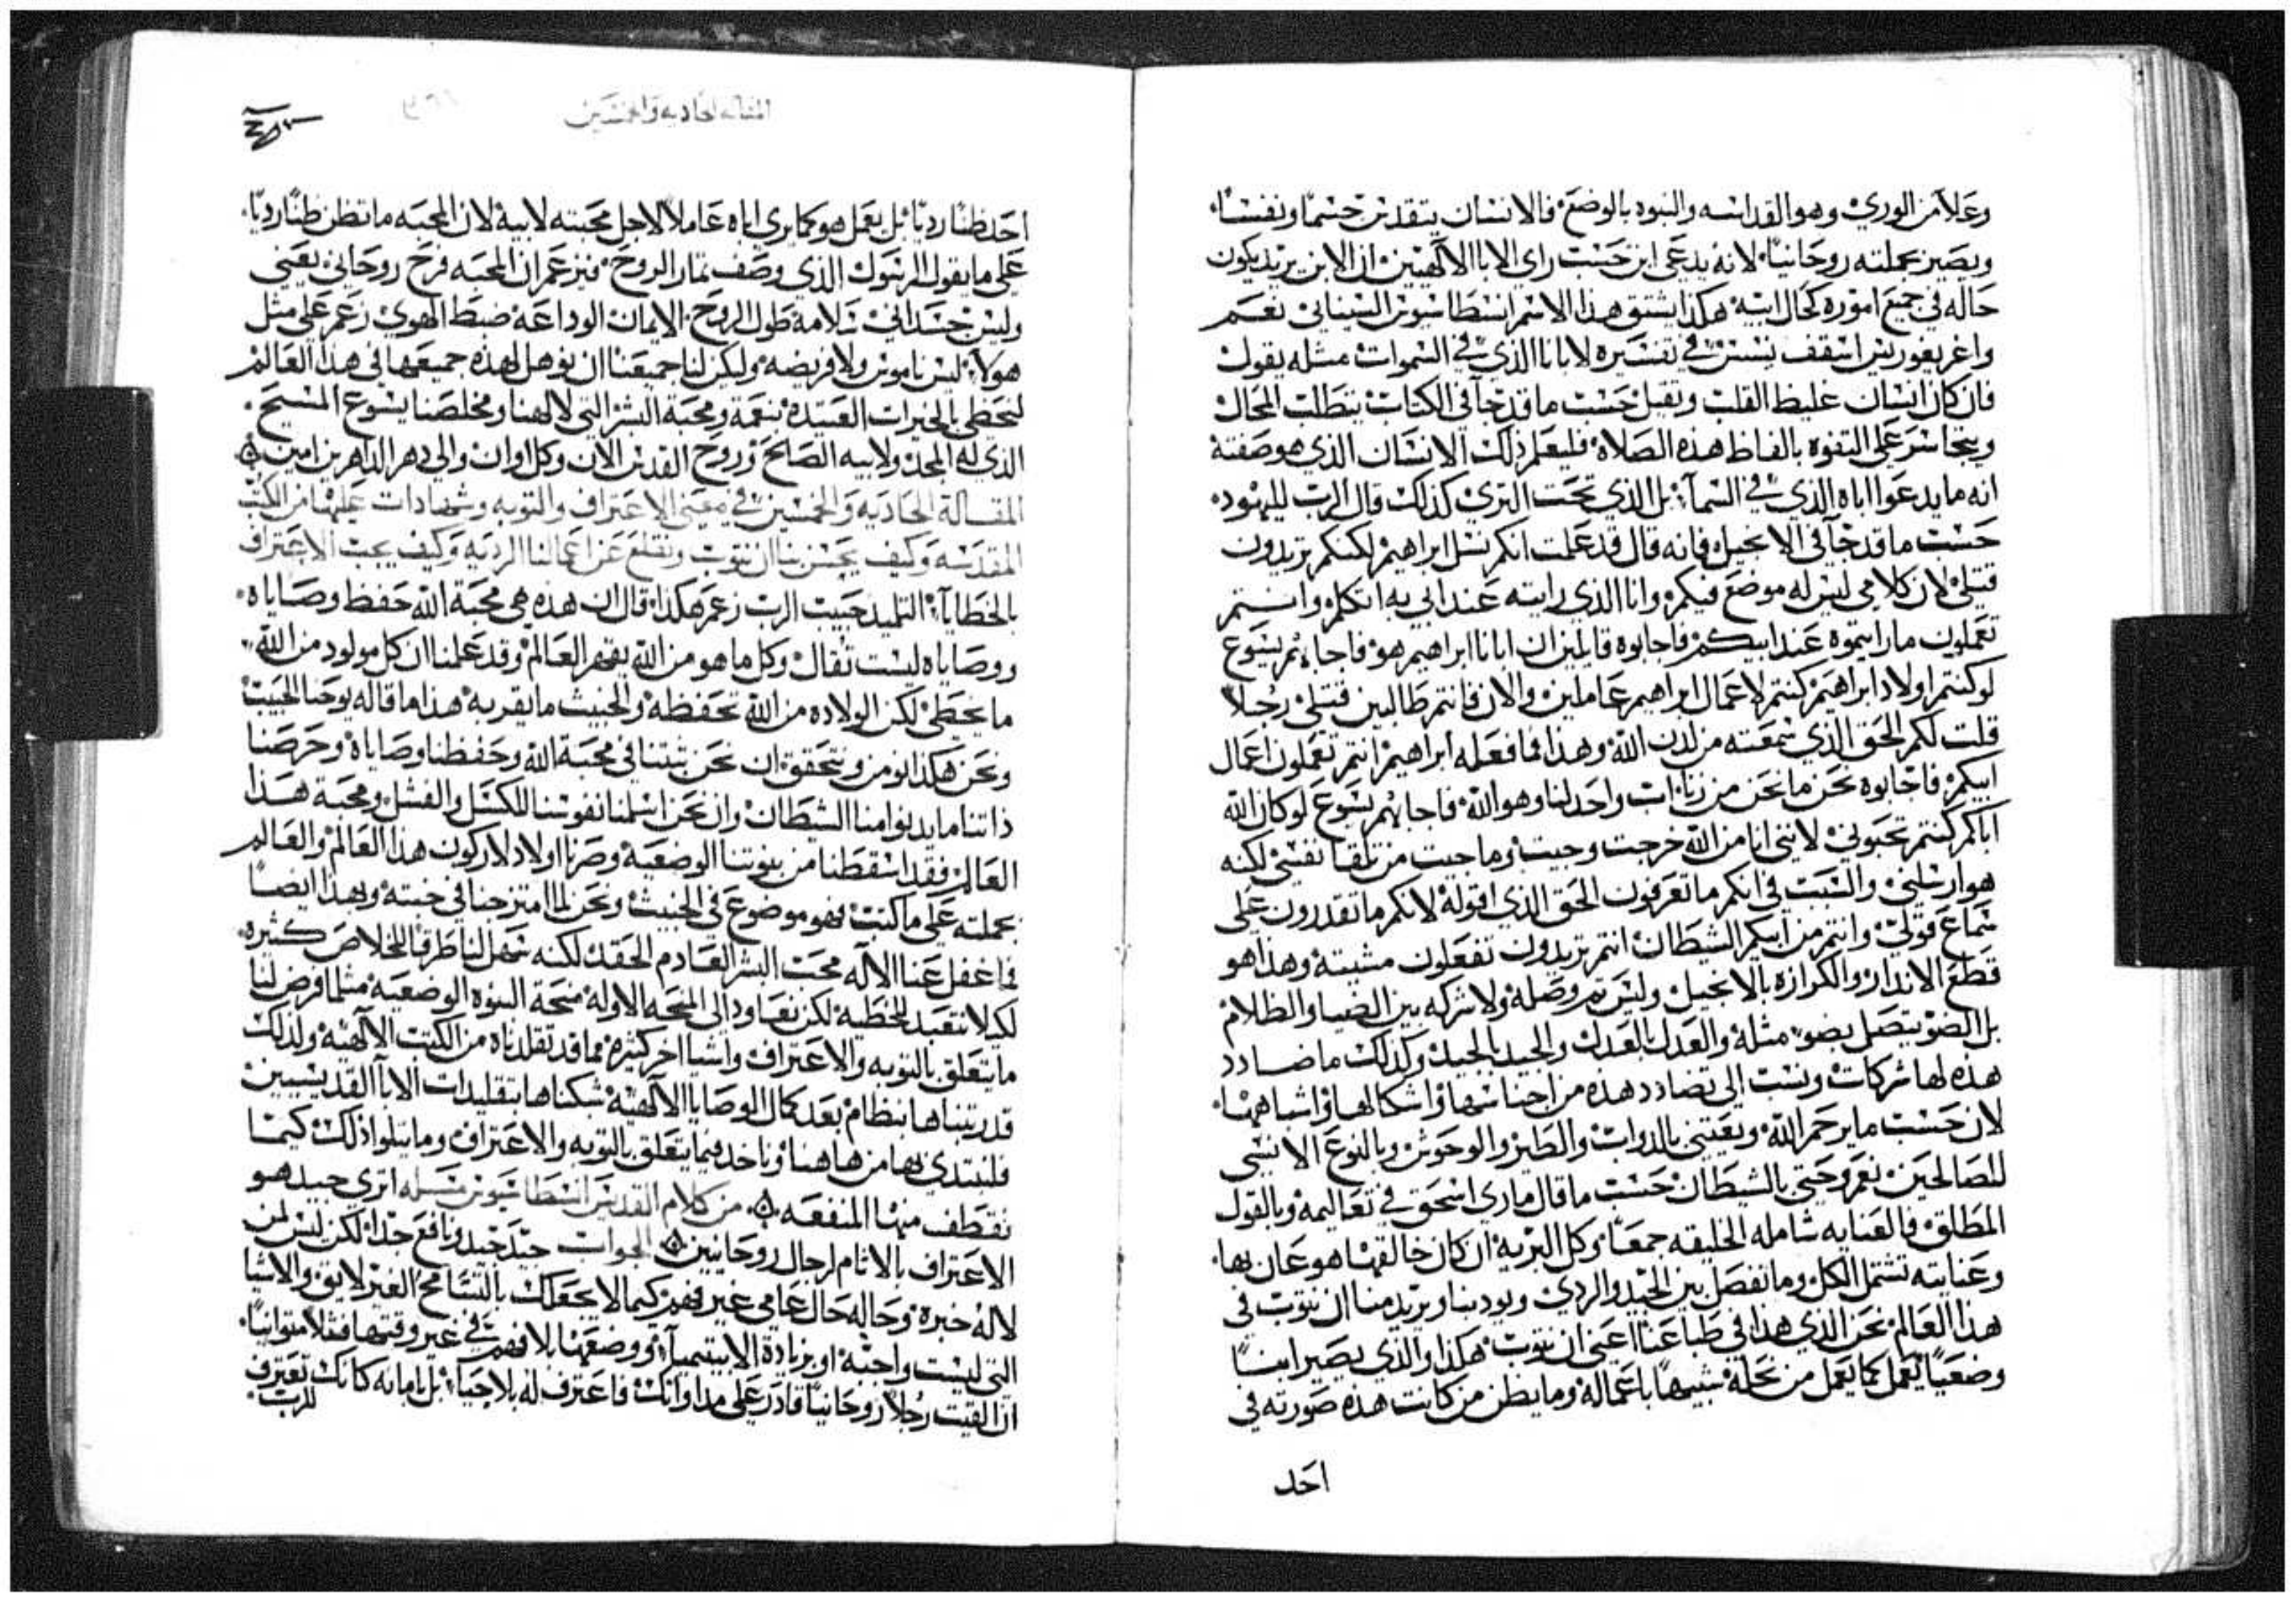 وعَلاَ من الوري وهو القداسه والبنوه بالوضع فالانسان يتقدس جسمًا ونفسًا
ويصير بجملته روحَانيًا لانه يدعَى ابن حَسَب راي الابا الالهيين ان الابن يريد يكون
حَاله في جميع اموره كحَال ابيه هكذا يشتق هذا الاسم انسطاسيوس السينائي نعَم
واغريغوريس اسقف نيسس في تفسيره لابانا الذي في السموات مثله يقول
فان كان انسان غليظ القلب وثقيل حَسَب ما قد جآ في الكتاب يتطلب المحَال
ويتجاسر عَلى التفوه بالفاظ هذه الصلاه فليعلم ذلك الانسان الذي هو صَفته
انه ما يدعوا اباه الذي في السمآ بل الذي تحَت الثري كذلك قال الرب لليهود
حَسَب ما قد جآ في الانجيل فانه قال قد عَلمت انكم نسل ابراهيم لكنكم تريدون
قتلي لان كلامي ليس له موضع فيكم وانا الذي رايته عَند ابي به اتكلم وانتم
تعملون ما رايتموه عَند ابيكم فاجابوه قايلين ان ابانا ابراهيم هو فاجابهم يسوع
لو كنتم اولاد ابراهيم كنتم لاعمال ابراهيم عَاملين والان فانتم طالبين قتلي رجلاً
قلت لكم الحَق الذي سمعته من لدن الله وهذا فما فعَله ابراهيم انتم تعَملون اعمال
ابيكم فاجابوه نحَن ما نحَن من زنا اب واحَد لنا وهو الله فاجابهم يسَوع لو كان الله
اباكم كنتم تحَبوني لانني انا من الله خرجت وجيت وما جيت من تلقا نفسي لكنه
هو ارسلني والسَبب في انكم ما تعرفون الحَق الذي اقوله لانكم ما تقدرون عَلى
سَماع قولي وانتم من ابيكم الشيطان انتم تريدون تفعَلون مشيته وهذا هو
قطع الانذار والكرازه بالانجيل وليس ثم وصَله ولا شركه بين الضيا والظلام
بل الضو يتصَل بضو مثله والعَدل بالعَدل والجيد بالجيد وكذلك ما ضادد
هذه لها شركات ونسَب الي تضادد هذه من اجناسها واشكالها واشباهها
لان حَسَب ما يرحَم الله ويعتني بالدواب والطير والوحَوش وبالنوع الانسي
للصَالحَين نعم وحَتي بالشيطان حَسَب ما قال ماري اسحَق في تعَاليمه وبالقول
المطلق فالعَنايه شامله الخليقه جمعًا وكل البريه ان كان خالقها هو عَان بها
وعَنايته تشتمل الكل وما تفصَل بين الجيد والردي ويود بنا ويريد منا ان نتوب في
هذا العَالم نحَن الذي هذا في طباعَنا اعني ان نتوب هكذا والذي يصَير ابنًا
وضعيًا يعمل كما يعمل من نحَله شبيهًا باعماله وما يظن من كانت هذه صَورته في
احَد
المقاله الحَاديه والخمسَين
احَد ظنًا رديًا بل يعَمل هو كما يري اباه عَاملاً لاجل محَبته لابيه لان المحبَه ما تظن ظنًا رديًا
عَلى ما يقول الرسَول الذي وصَف ثمار الروحَ فيزعَم ان المحَبه فرحَ روحَاني يعَني
وليس جسَداني سَلامه طول الروحَ الايمان الوداعَه ضبط الهوي زعم عَلي مثل
هولآ ليس ناموس ولا فريضه وليكن لنا جميعَنا ان نوهل لهذه جميعَها في هذا العَالم
لنحَظي بالخيرات العَتيده بنعَمة ومحَبة البشر التي لالهنا ومخلصَنا يسوع المسيح
الذي له المجد ولابيه الصَالحَ وروحَ القدس الان وكل اوان والي دهر الداهرين امين
المقاله الحَاديه والخمسَين في معَني الاعَتراف والتوبه وشهادات عَليها من الكتب
المقدسَه وكيف يحَسن بنا ان نتوب ونقلع عَن اعمالنا الرديه وكيف يجب الاعَتراف
بالخطايآ التلميذ حَبيب الرب زعَم هكذا قال ان هذه هي محَبة الله حَفظ وصَاياه
ووصَاياه ليست ثقال وكل ما هو من الله يقهر العَالم وقد عَلمنا ان كل مولود من الله
ما يخطي لكن الولاده من الله تحَفظه والخبيث ما يقربه هذا ما قاله يوحَنا الحَبيب
ونحَن هكذا نومن ونتحَقق ان نحَن ثبتنا في محَبة الله وحَفظنا وصَاياه وحَرصَنا
ذاتنا ما يدنوا منا الشيطان وان نحَن اسلمنا نفوسنا للكسَل والفشل ومحَبة هذا
العَالم فقد اسقطنا من بنوتنا الوضعَيه وصَرنا اولاد لاركون هذا العَالم والعَالم
بجملته عَلى ما كتب فهو موضوع في الخبيث ونحَن لما امتزجنا في خبثه وبهذا ايضًا
فما غفل عَنا الاله محَب البشر العَادم الحَقد لكنه سَهل لنا طرقًا للخلاصَ كثيره
لكيلا نتعَبد للخطيه لكن نعَاود الي المنحَه الاوله منحَة البنوه الوضعَيه مثلما فرض لنا
ما يتعَلق بالتوبه والاعَتراف واشيا اخر كثيره مما قد تقلدناه من الكتب الالهيه ولذلك
قد رتبناها بنظام بعَد كمال الوصَايا الالهيه شبكناها بتقليدات الابا القديسيين
فلنبتدي بها من هاهنا وناخذ فيما يتعَلق بالتوبه والاعَتراف وما يتلوا ذلك كيما
نقطف منها المنفعَه من كلام القديس انسطاسيوس مسَله اتري جيد هو
الاعَتراف بالاثام لرجال روحَانيين الجواب جيد جيد ونافع جدًا لكن ليس لمن
لا له خبره وحَاله حَال عَامي غير فهم كيما لا يجعَلك بالتسَامحَ الغير لايق والاشيا
التي ليست واجبه او بزيادة الابيتيميآ ووضعَها بلا فهم في غير وقتها متوانيًا
ان القيت رجلاً روحَانيًا قادر عَلي مداواتك فاعَترف له بلا حَيا بل بامانه كانك تعَترف
للرب